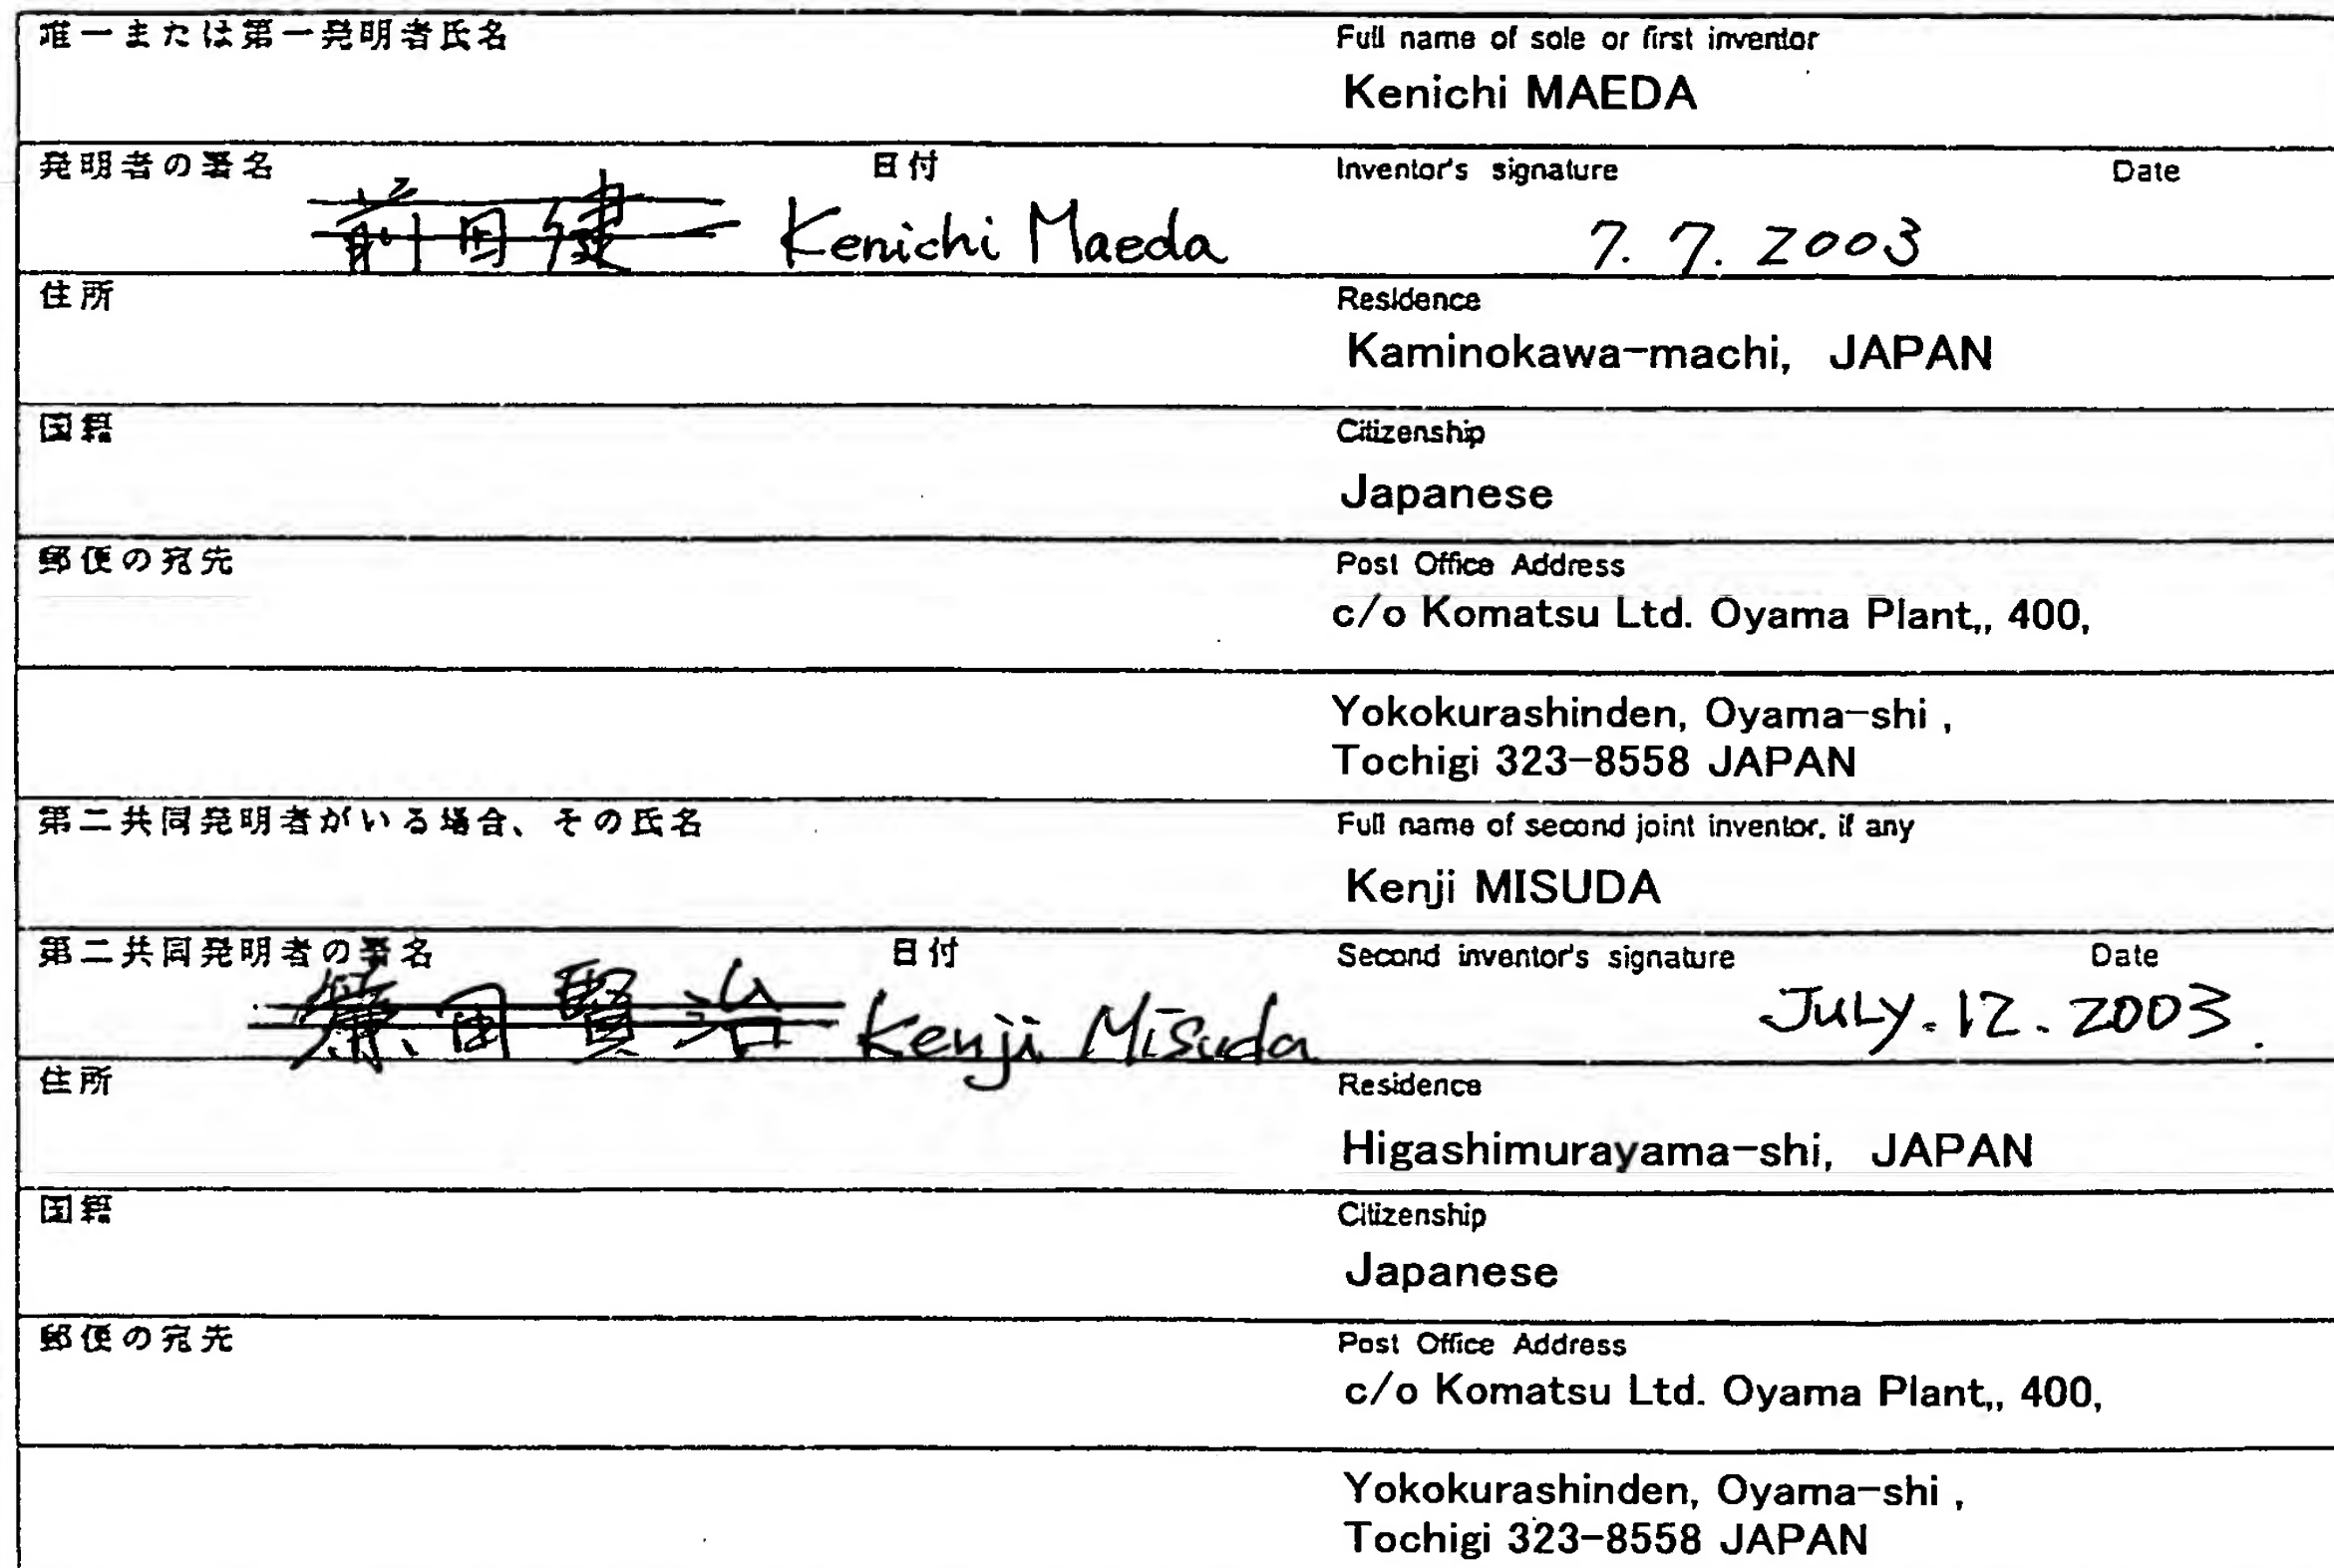 唯一または第一発明者氏名 Full name of sole or first inventor
Kenichi MAEDA
発明者の署名 日付 Inventor's signature Date
前田健一 Kenichi Maeda 7. 7. 2003
住所 Residence
Kaminokawa-machi, JAPAN
国籍 Citizenship
Japanese
郵便の宛先 Post Office Address
c/o Komatsu Ltd. Oyama Plant,, 400,
Yokokurashinden, Oyama-shi ,
Tochigi 323-8558 JAPAN
第二共同発明者がいる場合、その氏名 Full name of second joint inventor, if any
Kenji MISUDA
第二共同発明者の署名 日付 Second inventor's signature Date
田賢治 Kenji Misuda JULY. 12. 2003.
住所 Residence
Higashimurayama-shi, JAPAN
国籍 Citizenship
Japanese
郵便の宛先 Post Office Address
c/o Komatsu Ltd. Oyama Plant,, 400,
Yokokurashinden, Oyama-shi ,
Tochigi 323-8558 JAPAN